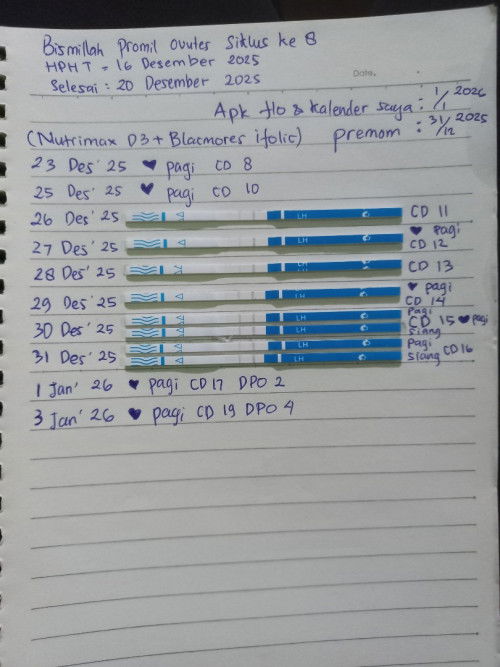 Bismillah Promil Ovutes Siklus ke 8
HPHT = 16 Desember 2025
Selesai : 20 Desember 2025
Date.
Apk flo & kalender saya : 1/1 2026
(Nutrimax D3 + Blacmores ifolic) premom : 31/12 2025
23 Des' 25 ♥ pagi CD 8
25 Des' 25 ♥ pagi CD 10
26 Des' 25 LH CD 11
27 Des' 25 LH ♥ pagi CD 12
28 Des' 25 LH CD 13
29 Des' 25 LH ♥ pagi CD 14
30 Des' 25 LH Pagi CD 15 ♥ pagi
LH Siang
31 Des' 25 LH Pagi CD 16
LH Siang
1 Jan' 26 ♥ pagi CD 17 DPO 2
3 Jan' 26 ♥ pagi CD 19 DPO 4